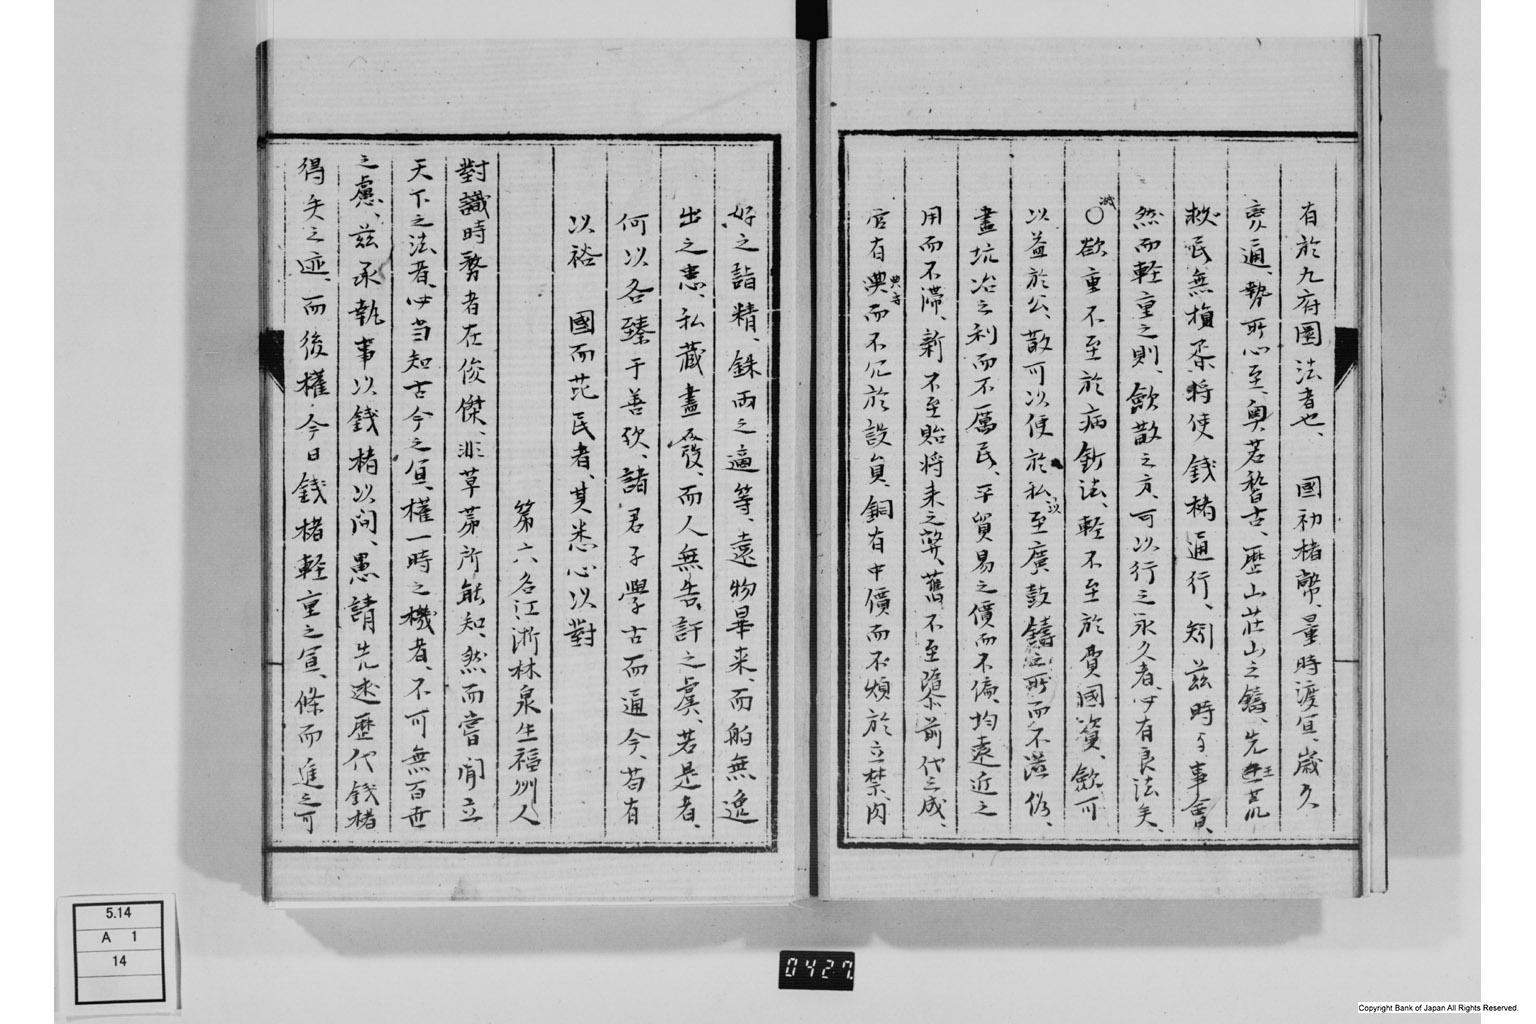 有於九府圜法者也、　國初楮幣、量時渡宜、歲久
弊通、勢所必至、奧若稽古、歷山莊山之鑄、先王荒
救民無損柰將使錢楮通行、矧茲時与事會、
然而軽重之則、歛散之方、可以行之永久者、必有良法矣、
○欲重不至於病鈔法、軽不至於費國資、歛可
以益於公、散可以便於私至廣鼓鑄之所而不滋僞、
盡坑冶之利而不厲民、平貿易之價而不偏、均遠近之
用而不滯、新不至貽将来之弊、舊不至隳前代之成、
官有典而不冗於設員、銅有中價而不煩於立禁、肉
好之詣精、銖兩之適等、遠物畢来、而舶無逸
出之患、私藏盡發、而人無告訐之虞、若是者、
何以各臻于善欤、諸君子學古而通今、苟有
以裕　國而芘民者、其悉心以對
第六名江浙林泉生福州人
對識時務者在俊傑、非草茅所能知、然而嘗聞立
天下之法者、必当知古今之宜、權一時之機者、不可無百世
之慮、兹承執事以錢楮以问、愚請先述歷代錢楮
得失之迹、而後權今日錢楮軽重之宜、條而進之可
5.14
A 1
14
0427
Copyright Bank of Japan All Rights Reserved.